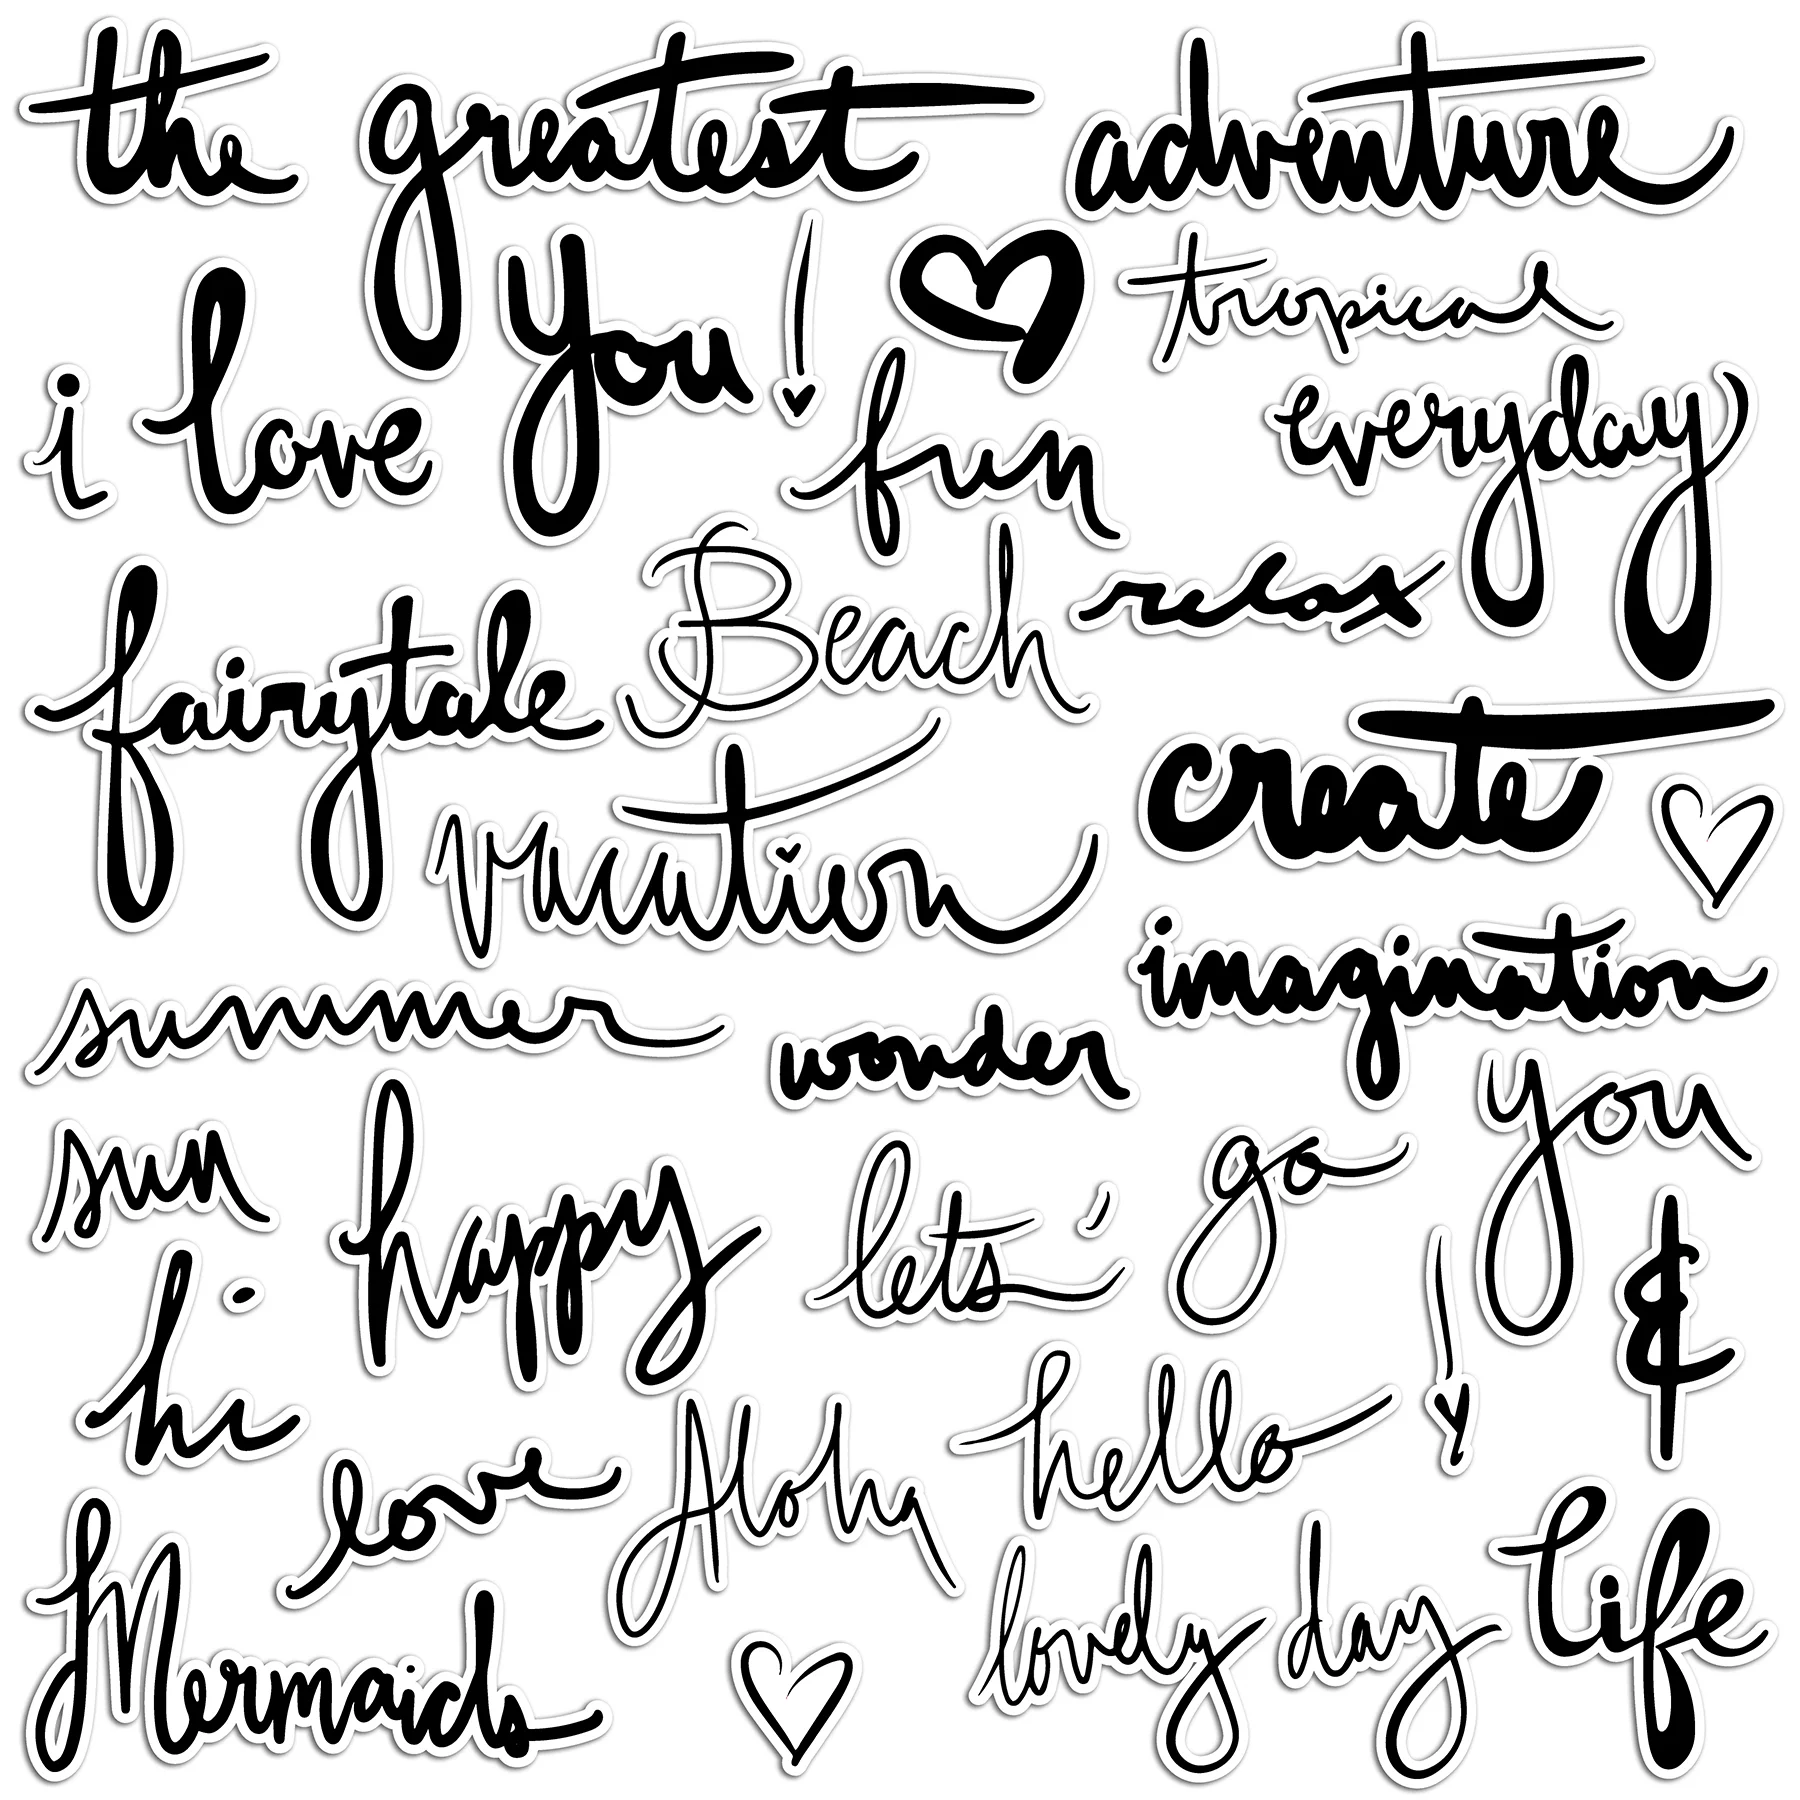 the greatest adventure
i love you! tropical
fun everyday
Beach relax
fairytale
create
vacation
imagination
summer
wonder
you
sun happy lets' go
&
hi
hello
love Aloha
life
Mermaids lovely day